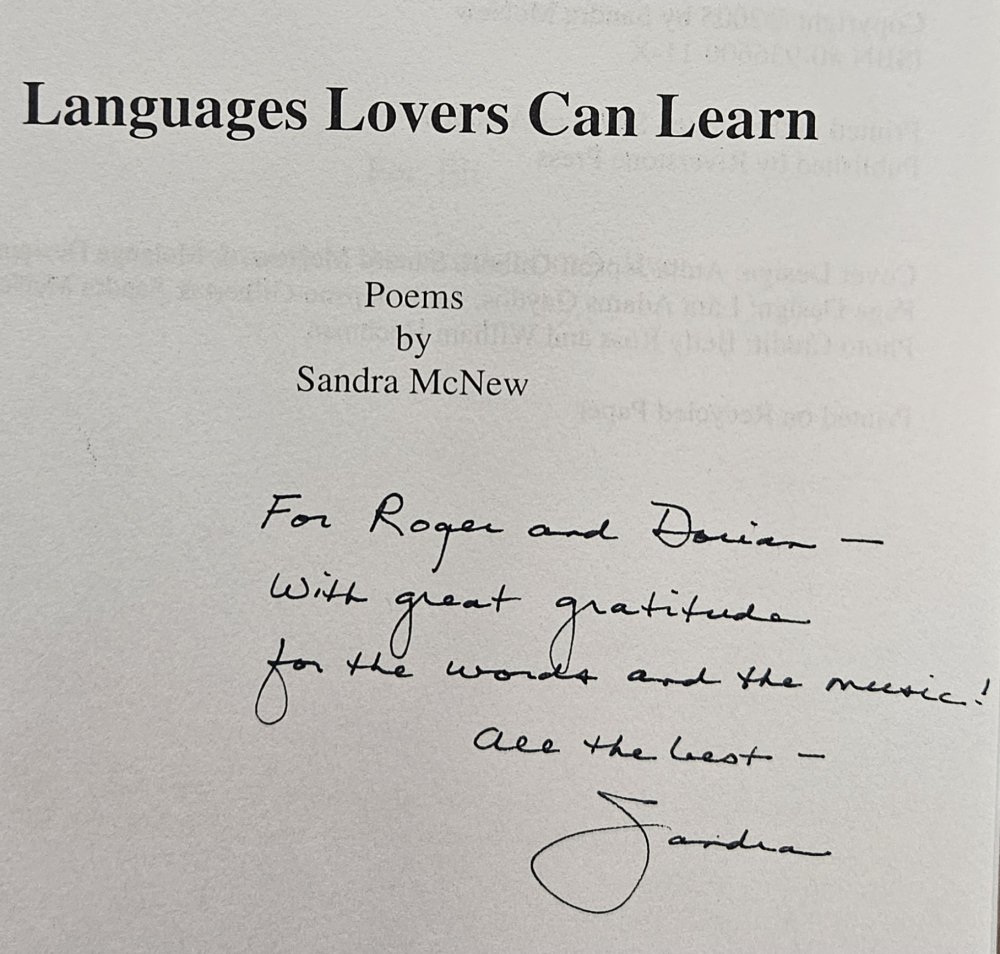 Languages Lovers Can Learn
Poems
by
Sandra McNew
For Roger and Dorian —
With great gratitude
for the words and the music!
all the best —
Sandra